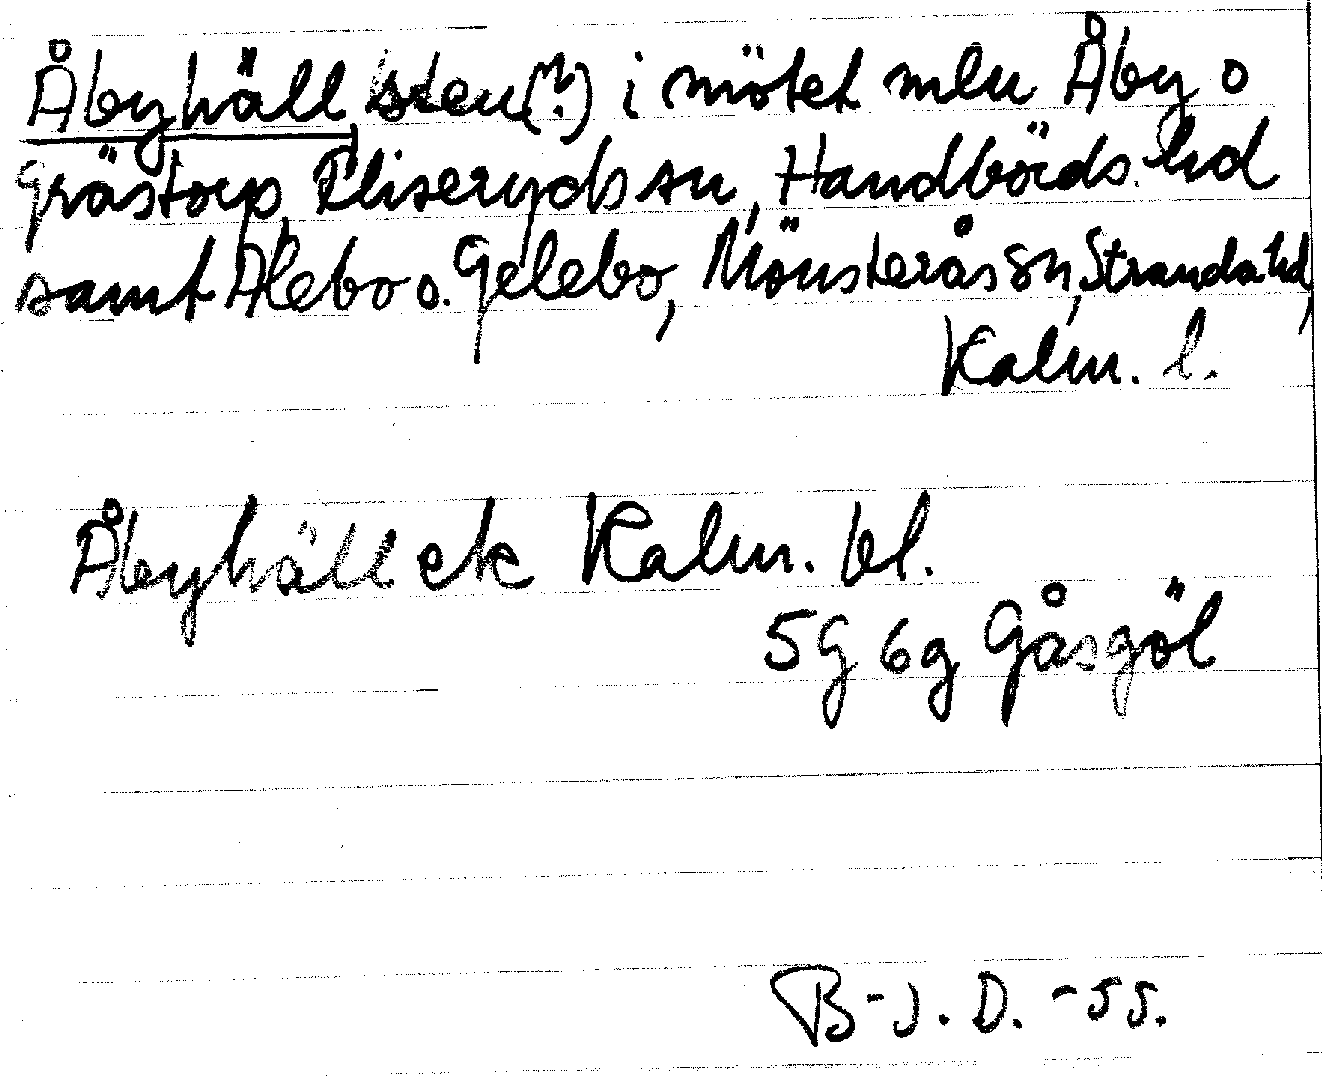 Åbyhäll, sten(?) i mötet mlu Åby o
Grästorp, Fliseryds sn, Handbörds hd
samt Alebo o. Gelebo, Mönsterås sn, Stranda hd,
Kalm. l.
Åbyhäll ek Kalm. bl.
5G 6g Gåsgöl
B-J. D. -55.